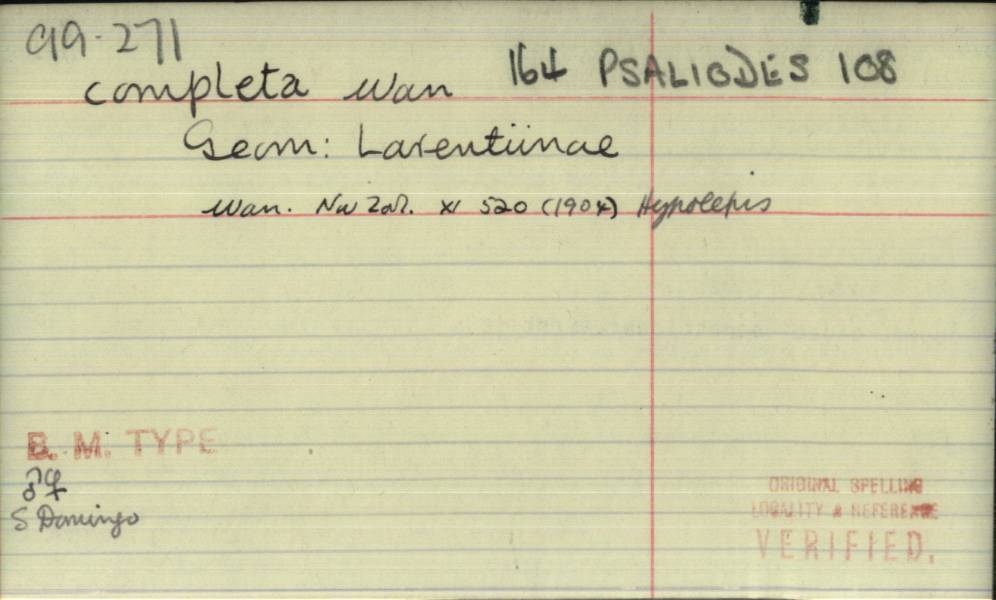 99.271
completa Warr 164 PSALIODES 108
Geom: Larentiinae
Warr. Nov Zool. XI 520 (1904) Hypolepis
B. M. TYPE
♂♀
S Domingo
ORIGINAL SPELLING
LOCALITY & REFERENCE
VERIFIED.